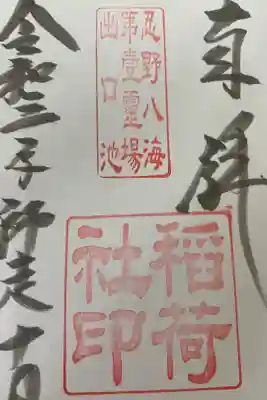 奉拝
忍野八海
第壹靈場
出口池
稲荷
社印
令和三年師走十日